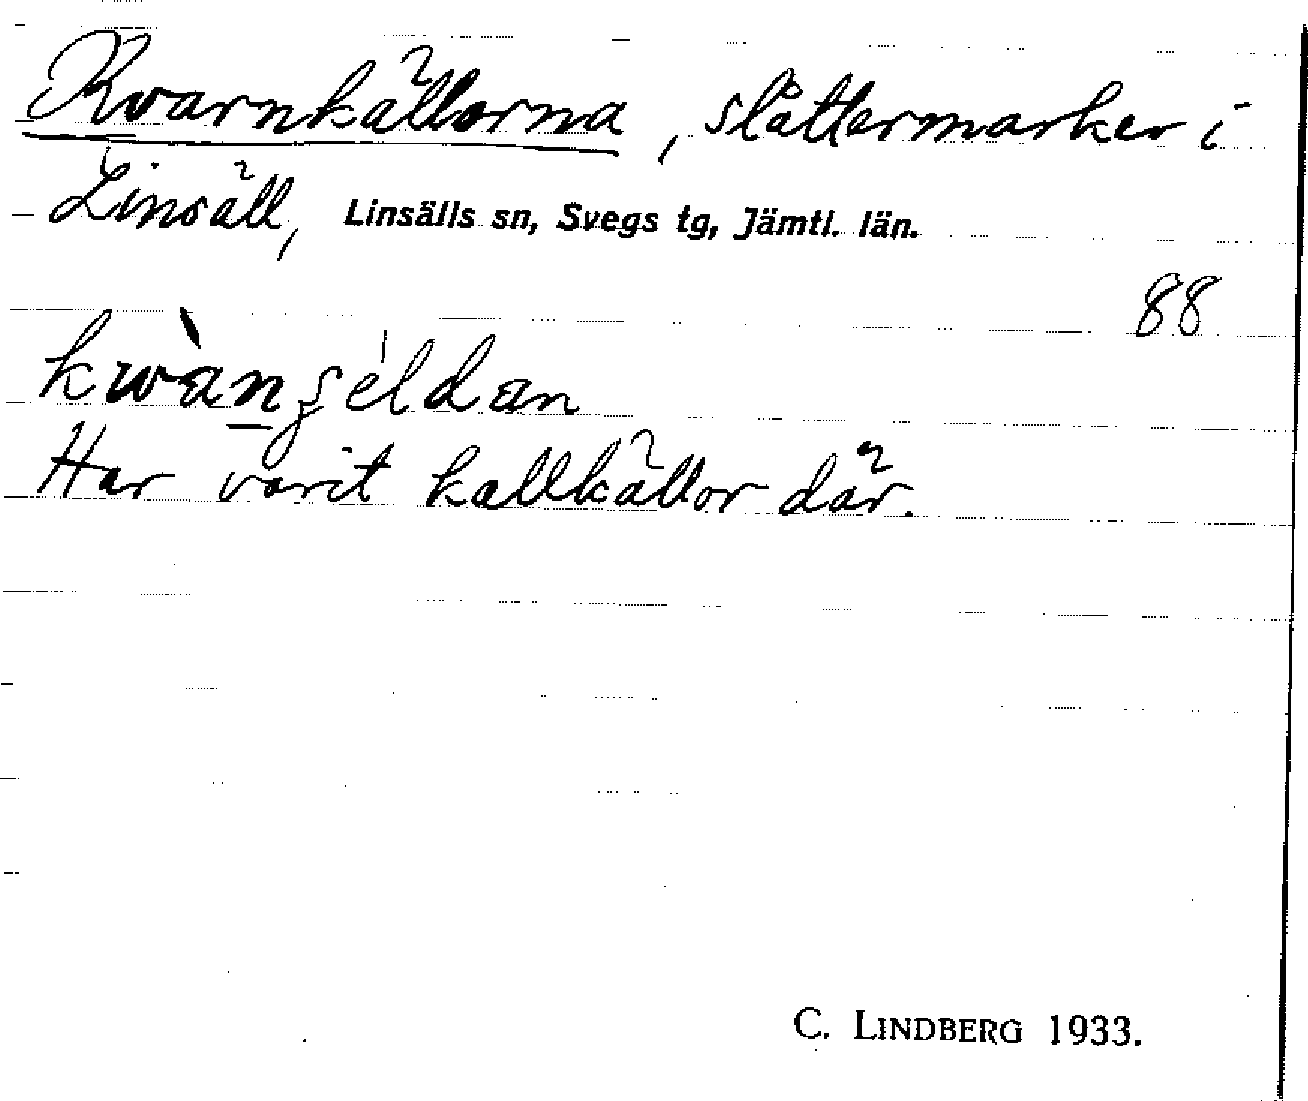 Kvarnkällorna, slåttermarker i
Linsäll, Linsälls sn, Svegs tg, Jämtl. län.
88
Har varit kallkällor där.
C. LINDBERG 1933.